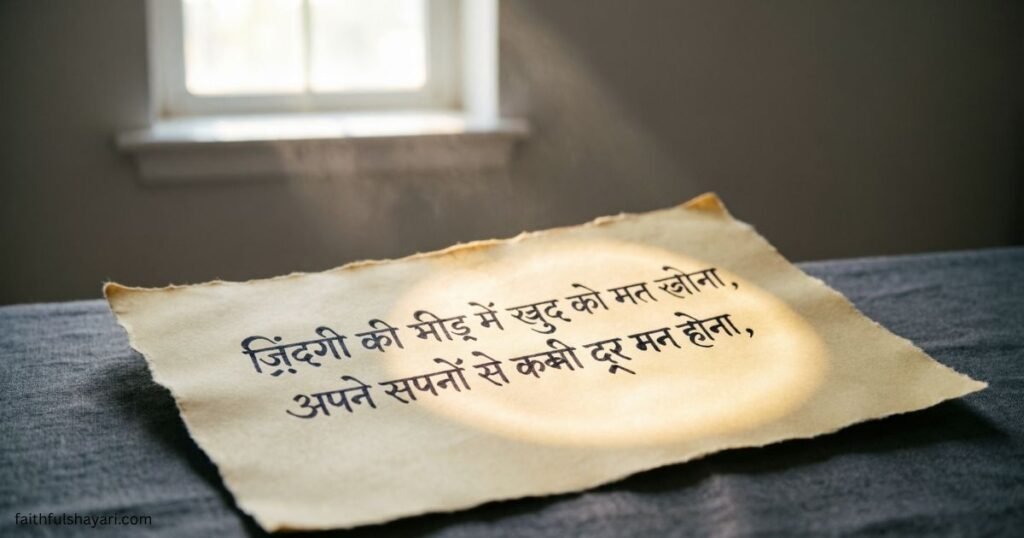 ज़िंदगी की मीड़ में खुद को मत खोना,
अपने सपनों से कभी दूर मन होना,
faithfulshayari.com